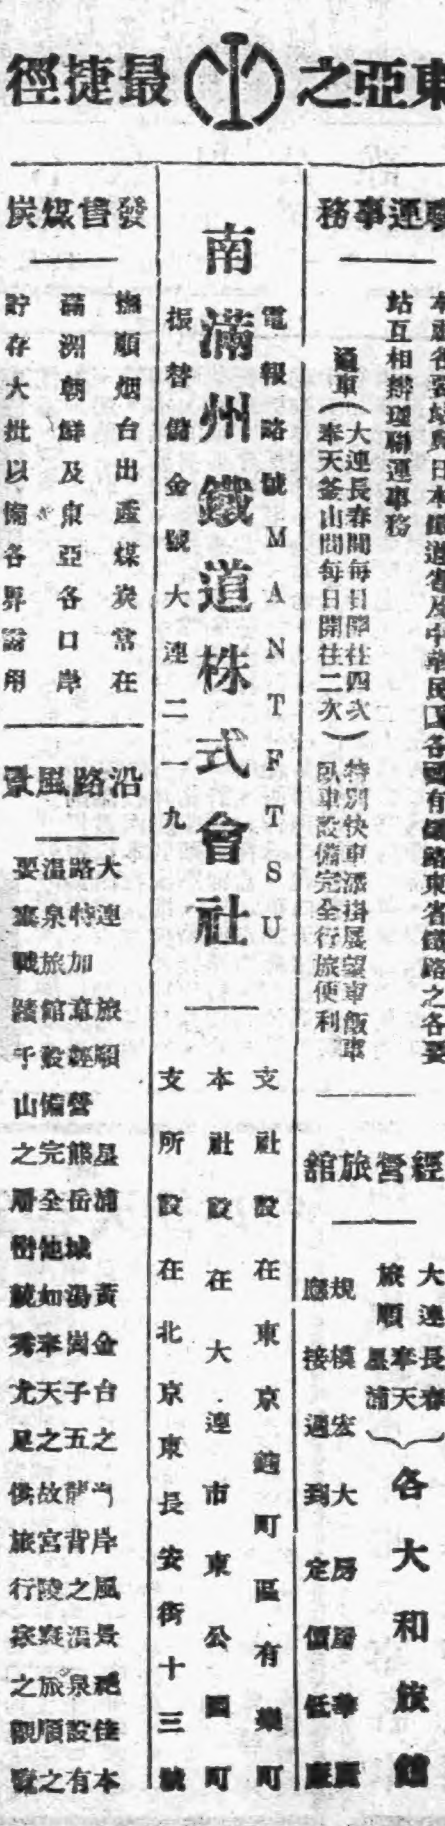 東亞之最捷徑
聯運事務
本局各要站與日本鐵道省及中華民國各國有鐵路東省鐵路之各要
站互相辦理聯運事務
通車(大連長春間每日開往四次
奉天釜山間每日開往二次)
特別快車添掛展望車飯車
臥車設備完全行旅便利
經營旅館
大連長春
旅順奉天
星浦
各大和旅館
規模宏大房屋華麗
應接週到定價低廉
南滿州鐵道株式會社
電報略號MANTFTSU
振替儲金號大連二一九
支社設在東京麴町區有樂町
本社設在大連市東公園町
支所設在北京東長安街十三號
發售煤炭
撫順烟台出產煤炭常在
滿洲朝鮮及東亞各口岸
貯存大批以備各界需用
沿路風景
大連 旅順 星浦 黃金台之當岸風景絕佳本
路特加意經營熊岳城湯崗子五龍背之溫泉設有
溫泉旅館設備完全他如奉天之故宮陵寢旅順之
要塞戰蹟千山之層樹蔬秀尤足供旅行家之觀覽